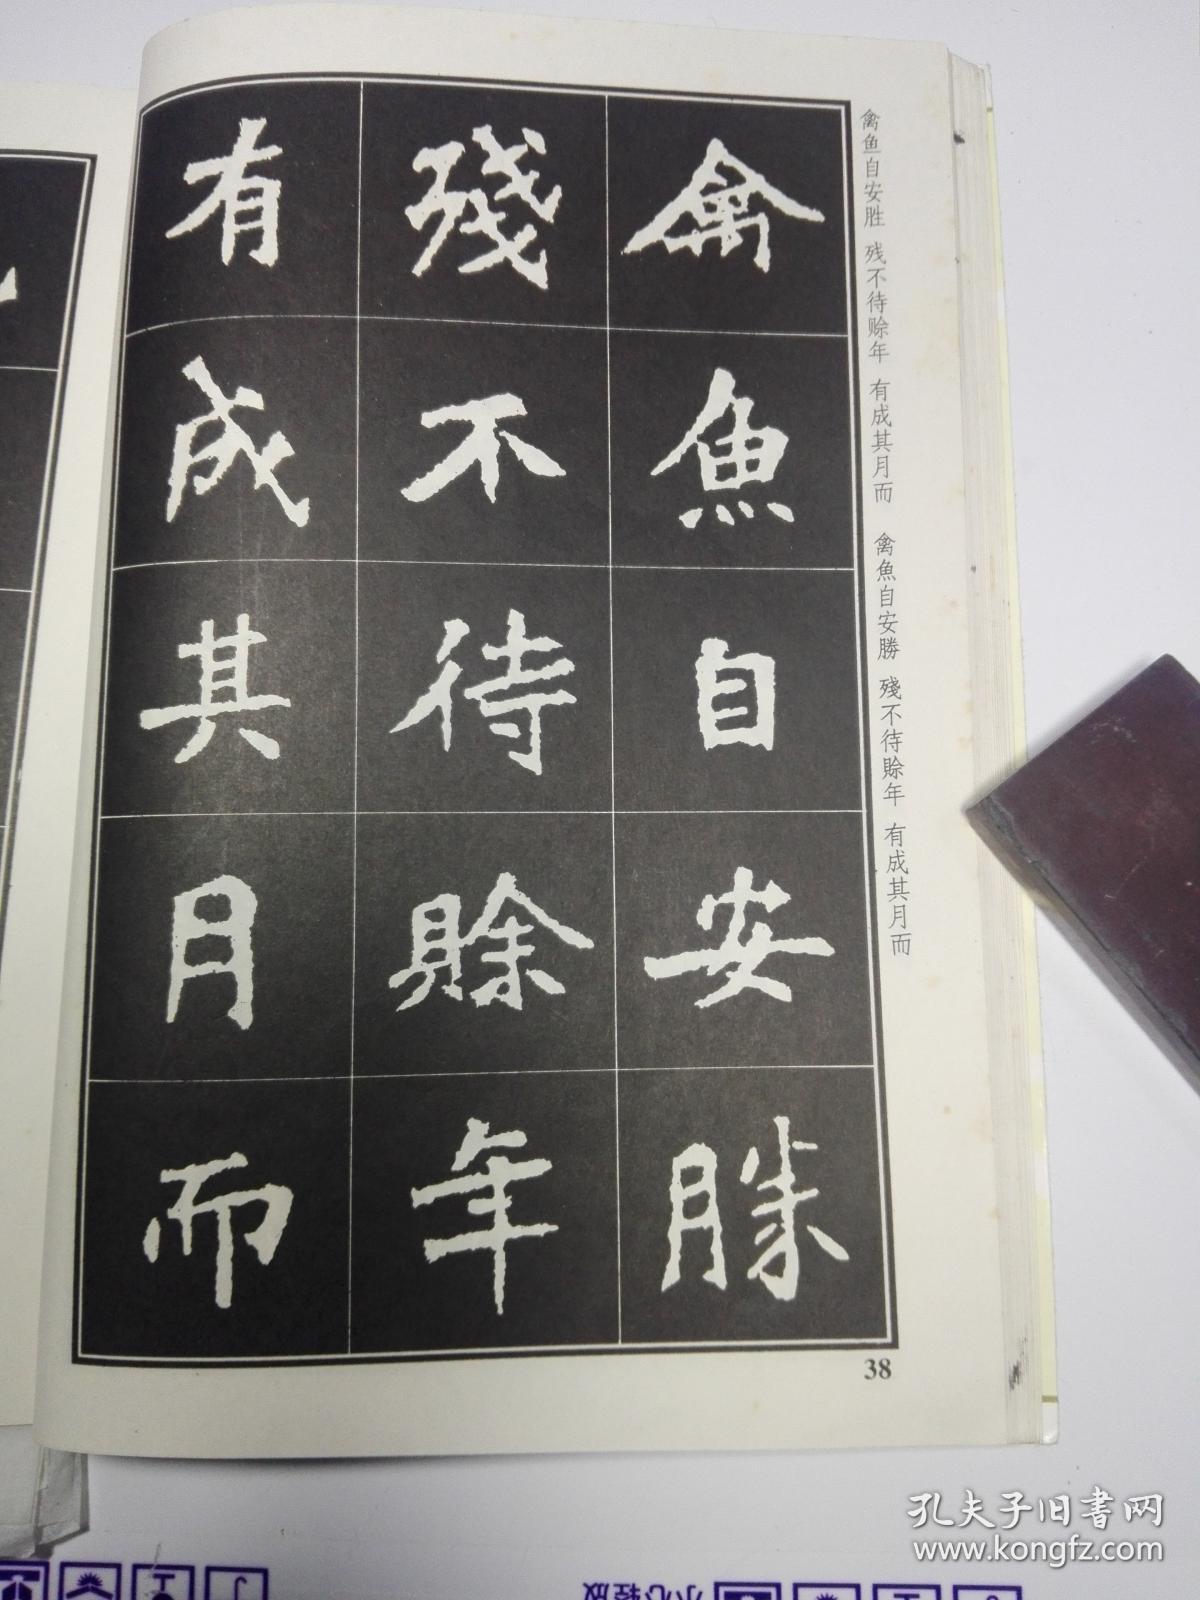 禽魚自安勝
殘不待賒年
有成其月而
禽鱼自安胜 残不待赊年 有成其月而 禽魚自安勝 殘不待賒年 有成其月而
38
孔夫子旧书网
www.kongfz.com
小心轻放